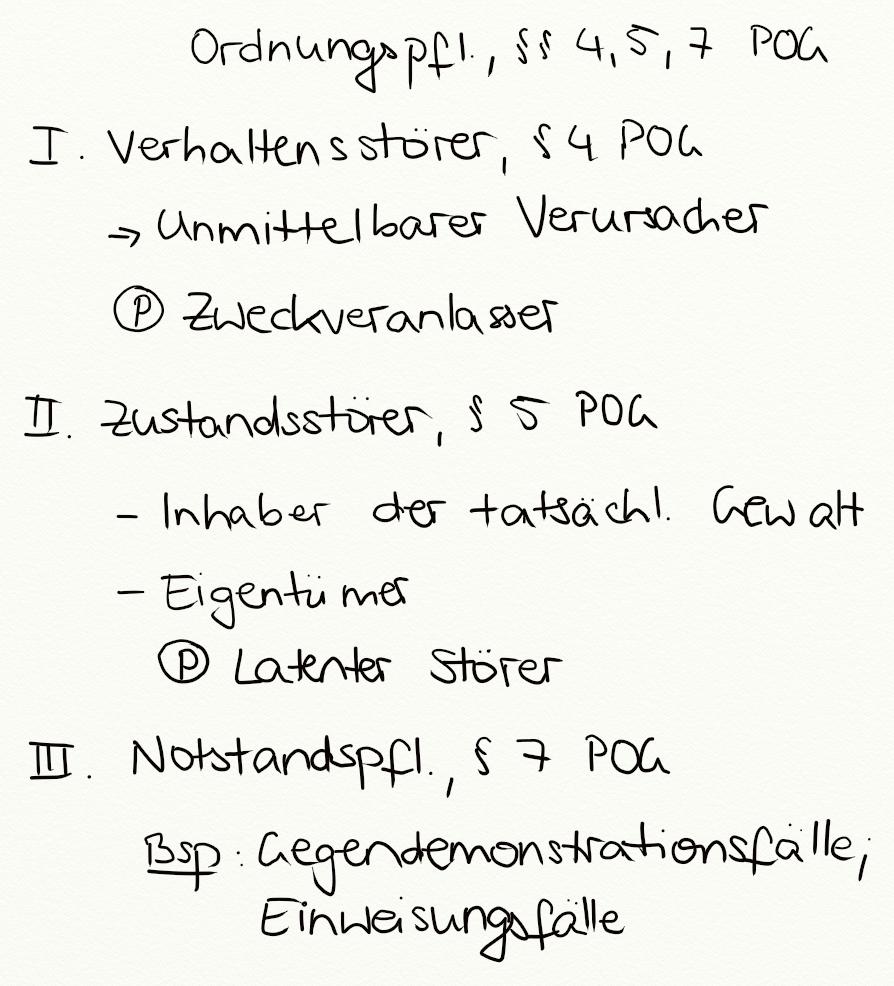 Ordnungspfl., §§ 4, 5, 7 POG
I. Verhaltensstörer, § 4 POG
→ Unmittelbarer Verursacher
Ⓟ Zweckveranlasser
II. Zustandsstörer, § 5 POG
- Inhaber der tatsächl. Gewalt
- Eigentümer
Ⓟ Latenter Störer
III. Notstandspfl., § 7 POG
Bsp: Gegendemonstrationsfälle;
Einweisungsfälle